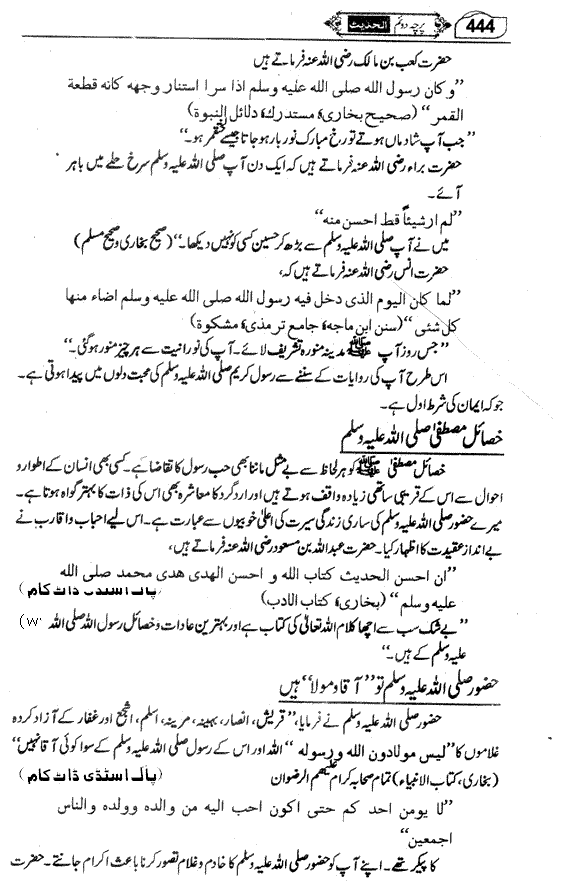 444 الحدیث پرچہ دوئم
حضرت کعب بن مالک رضی اللہ عنہ فرماتے ہیں
”و کان رسول الله صلی الله علیه وسلم اذا سرا استنار وجهه کانه قطعة
القمر“ (صحیح بخاری، مستدرک، دلائل النبوة)
”جب آپ شادماں ہوتے تو رخ مبارک نور بار ہو جاتا جیسے قمر ہو۔“
حضرت براء رضی اللہ عنہ فرماتے ہیں کہ ایک دن آپ صلی اللہ علیہ وسلم سرخ حلے میں باہر
آئے۔
”لم ار شیئاً قط احسن منه“
میں نے آپ صلی اللہ علیہ وسلم سے بڑھ کر حسین کسی کو نہیں دیکھا۔“ (صحیح بخاری و صحیح مسلم)
حضرت انس رضی اللہ عنہ فرماتے ہیں کہ،
”لما کان الیوم الذی دخل فیه رسول الله صلی الله علیه وسلم اضاء منها
کل شئی“ (سنن ابن ماجه، جامع ترمذی، مشکوة)
”جس روز آپ ﷺ مدینہ منورہ تشریف لائے۔ آپ کی نورانیت سے ہر چیز منور ہو گئی۔“
اس طرح آپ کی روایات کے سننے سے رسول کریم صلی اللہ علیہ وسلم کی محبت دلوں میں پیدا ہوتی ہے۔
جو کہ ایمان کی شرط اول ہے۔
خصائل مصطفیٰ صلی اللہ علیہ وسلم
خصائل مصطفیٰ ﷺ کو ہر لحاظ سے بے مثل ماننا بھی حب رسول کا تقاضا ہے۔ کسی بھی انسان کے اطوار و
احوال سے اس کے قریبی ساتھی زیادہ واقف ہوتے ہیں اور ارد گرد کا معاشرہ بھی اس کی ذات کا بہتر گواہ ہوتا ہے۔
میرے حضور صلی اللہ علیہ وسلم کی ساری زندگی سیرت کی اعلیٰ خوبیوں سے عبارت ہے۔ اس لیے احباب و اقارب نے
بے انداز عقیدت کا اظہار کیا۔ حضرت عبداللہ بن مسعود رضی اللہ عنہ فرماتے ہیں،
”ان احسن الحدیث کتاب الله و احسن الهدی هدی محمد صلی الله
علیه وسلم“ (بخاری، کتاب الادب)
پاک اسٹڈی ڈاٹ کام
”بے شک سب سے اچھا کلام اللہ تعالیٰ کی کتاب ہے اور بہترین عادات و خصائل رسول اللہ صلی اللہ
علیہ وسلم کے ہیں۔“
حضور صلی اللہ علیہ وسلم تو ”آقا و مولا“ ہیں
حضور صلی اللہ علیہ وسلم نے فرمایا، ”قریش، انصار، جہینہ، مزینہ، اسلم، اشجع اور غفار کے آزاد کردہ
غلاموں کا ”لیس مولا دون الله و رسوله“ اللہ اور اس کے رسول صلی اللہ علیہ وسلم کے سوا کوئی آقا نہیں“
(بخاری، کتاب الانبیاء) تمام صحابہ کرام علیہم الرضوان پاک اسٹڈی ڈاٹ کام
”لا یومن احد کم حتی اکون احب الیه من والده وولده والناس
اجمعین“
کا پیکر تھے۔ اپنے آپ کو حضور صلی اللہ علیہ وسلم کا خادم و غلام تصور کرنا باعث اکرام جانتے۔ حضرت